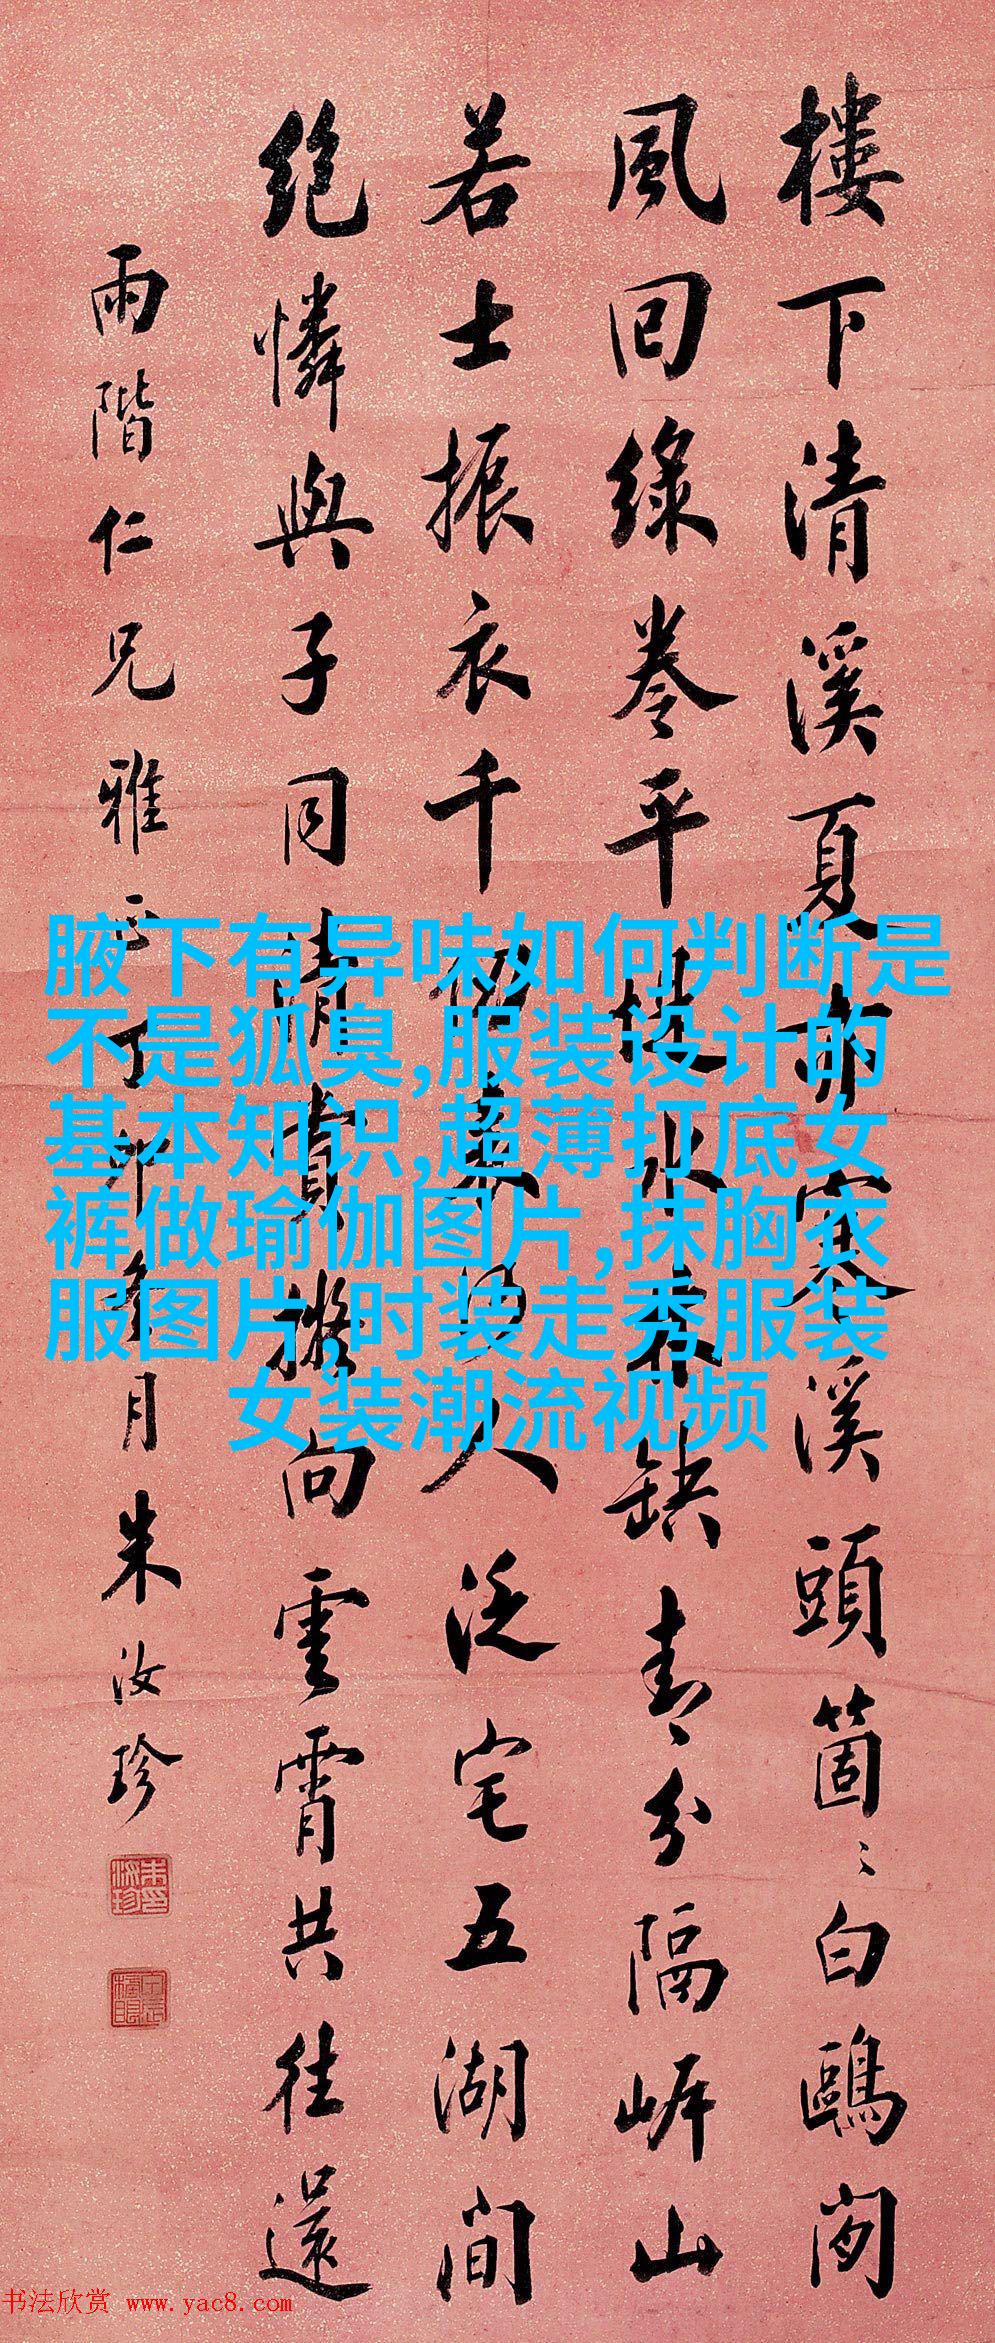 樓下清溪夏亦寒溪頭箇〻白鷗閒
風回綠卷平堤水林缺青分隔岸山
若士振衣千仞表何人泛宅五湖間
絕憐與子同清賞擬向雲霄共往還
雨階仁兄雅正丁卯冬月朱汝珍
腋下有异味如何判断是
不是狐臭,服装设计的
基本知识,超薄打底女
裤做瑜伽图片,抹胸衣
服图片,时装走秀服装
女装潮流视频
书法欣赏 www.yac8.com